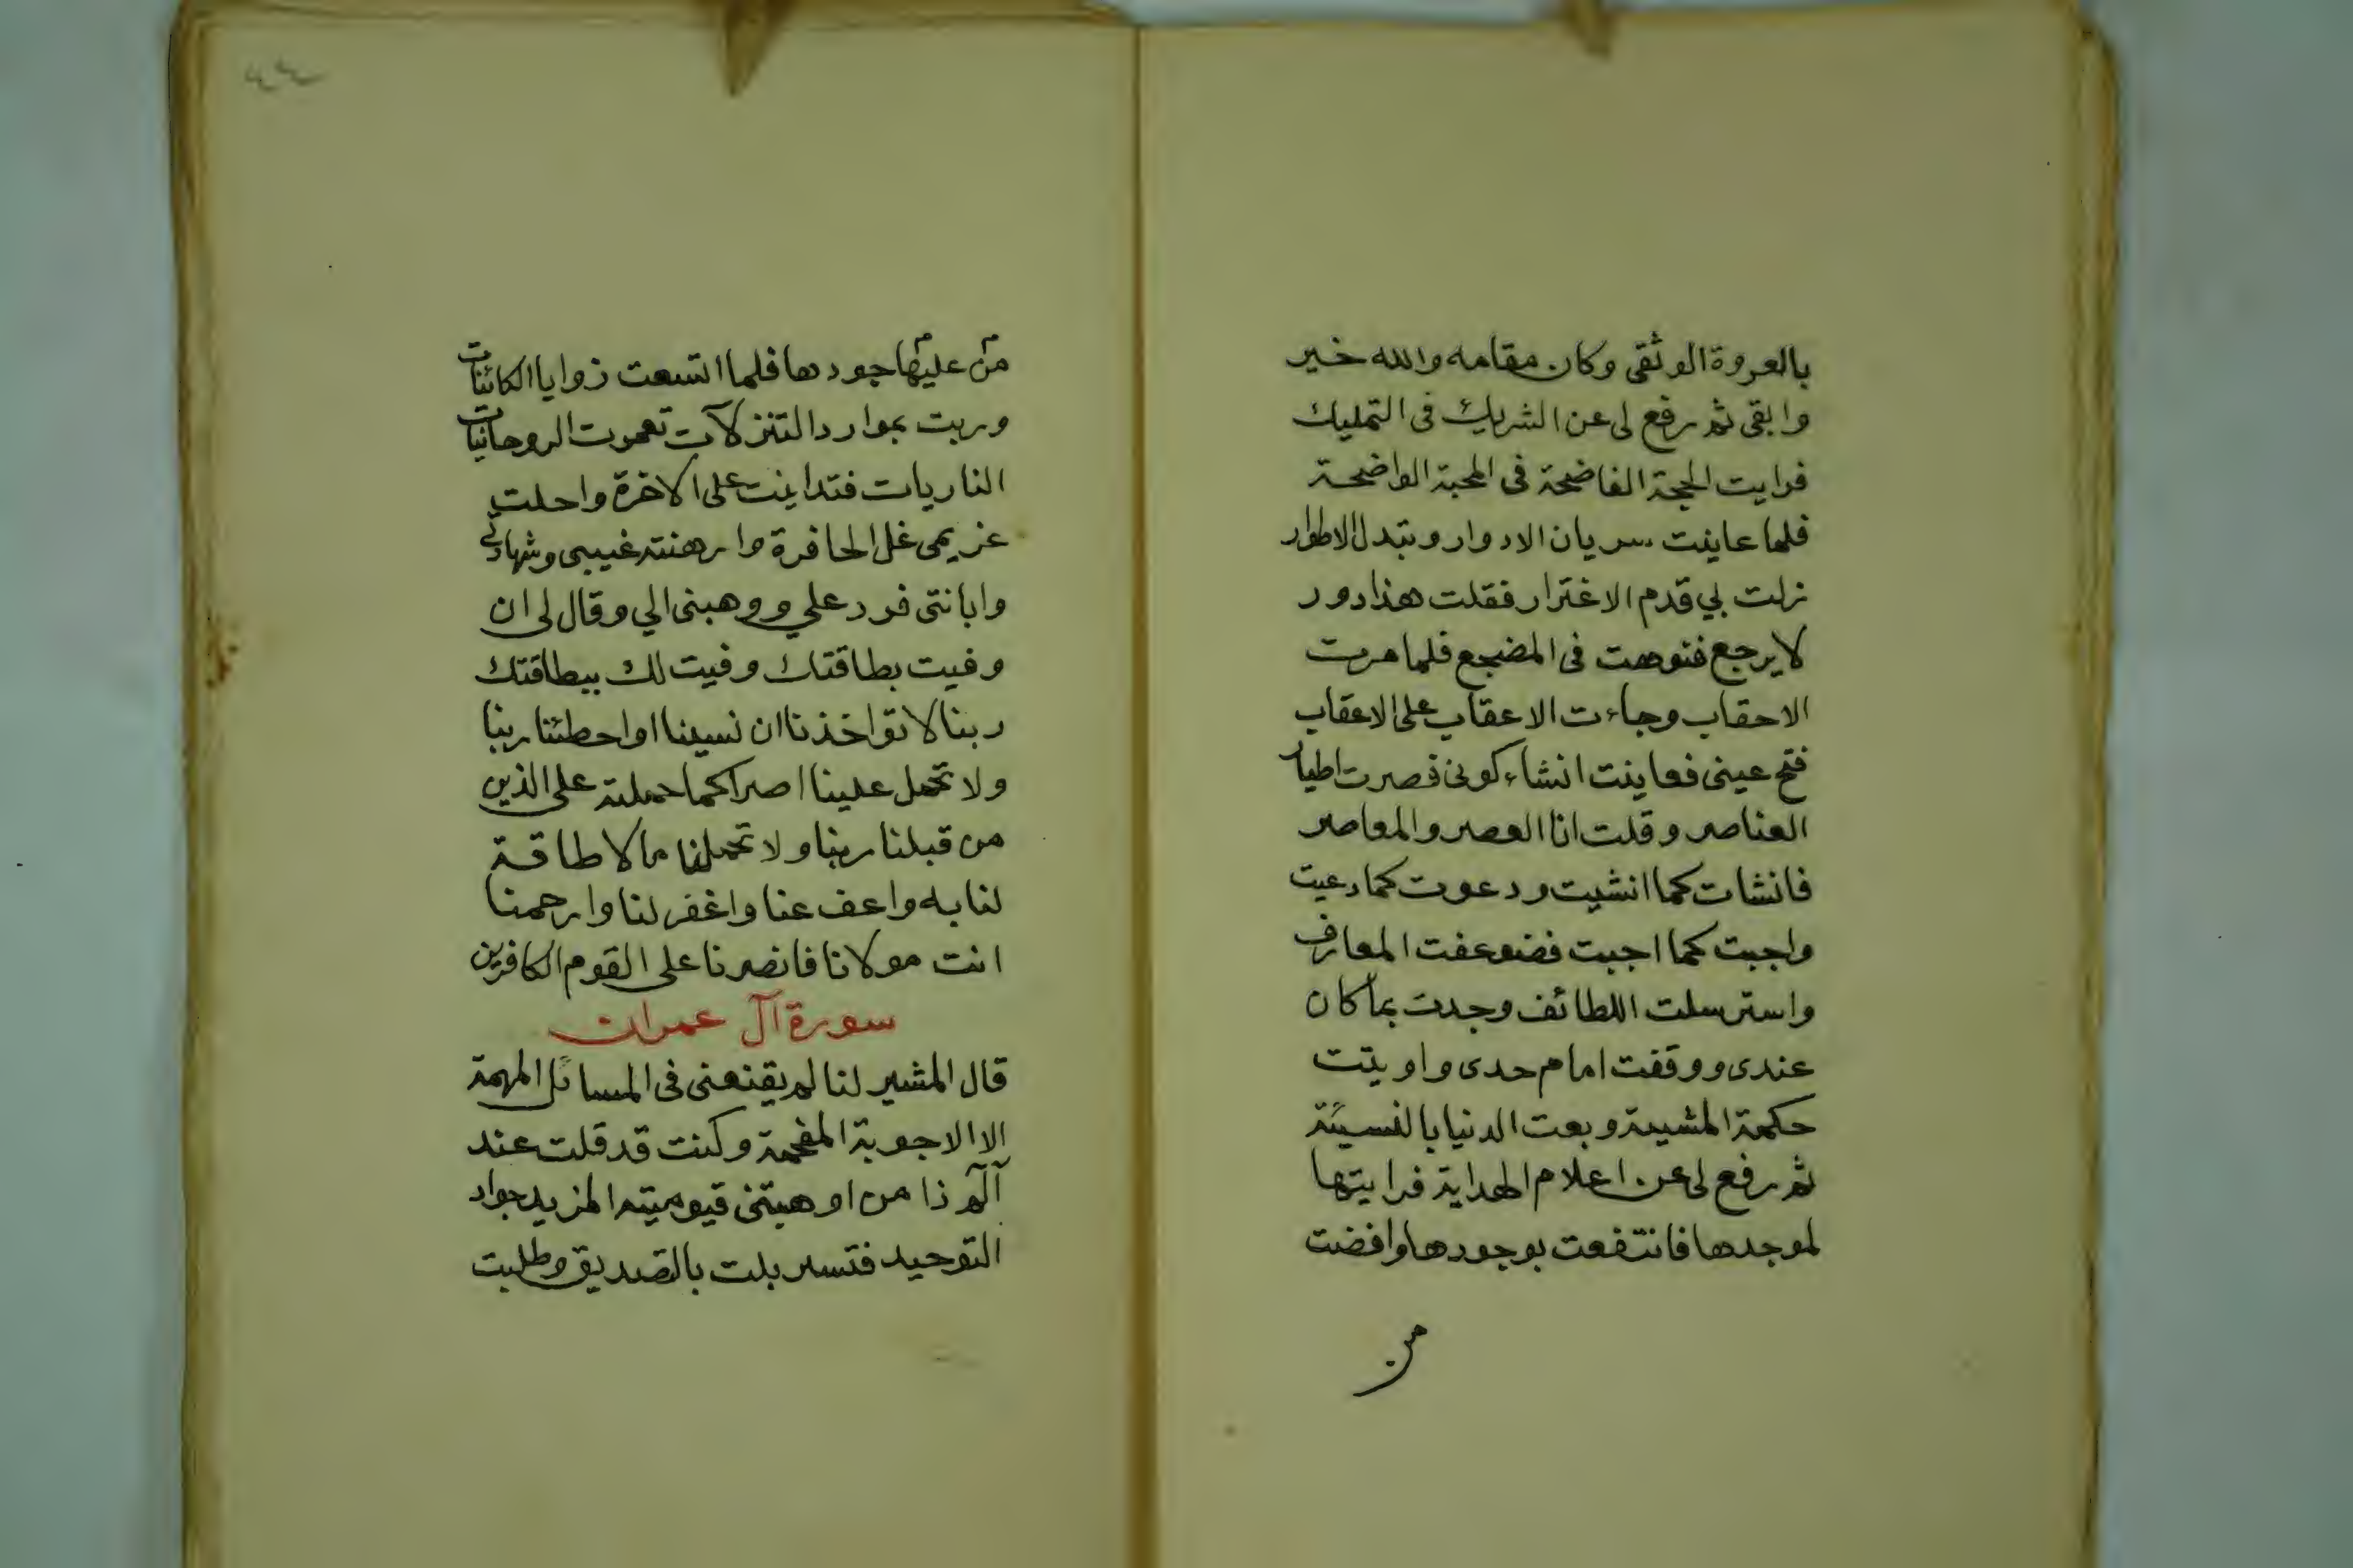 بالعروة الوثقى وكان مقامه والله خير
وابقى ثم رفع لى عن الشريك فى التمليك
فرايت الحجة الفاضحة فى المحبة الواضحة
فلما عاينت سريان الادوار وتبدل الاطوار
زلت بي قدم الاغترار فقلت هذا دور
لا يرجع فتوهت فى المضجع فلما مرت
الاحقاب وجاءت الاعقاب على الاعقاب
فتح عينى فعاينت انشاء كونى فصرت اطيار
العناصر وقلت انا العصر والمعاصر
فانشات كما انشيت ودعوت كما دعيت
واجبت كما اجبت فضوعفت المعارف
واسترسلت اللطائف وجدت بما كان
عندى ووقفت امام حدى واويتت
حكمة المشيىة وبعت الدنيا بالنسيئة
ثم رفع لى عن اعلام الهداية فرايتها
لموجدها فانتفعت بوجودها وافضت
من
من عليها جودها فلما اتسعت زوايا الكائنات
وربت بموارد التنزلات تعمرت الروحانيات
الناريات فتداينت على الاخرة واحلت
غريمى على الحافرة وارهنته غيبى وشهادتى
وابانتى فرد علي ووهبنى الي وقال لى ان
وفيت بطاقتك وفيت لك ببطاقتك
ربنا لا تواخذنا ان نسينا او اخطئنا ربنا
ولا تحمل علينا اصرا كما حملته على الذين
من قبلنا ربنا ولا تحملنا ما لا طاقة
لنا به واعف عنا واغفر لنا وارحمنا
انت مولانا فانصرنا على القوم الكافرين
سورة آل عمران
قال المشير لنا لم يقنعنى فى المسائل المهمة
الا الاجوبة المفحمة وكنت قد قلت عند
آلم ذا من اوهبتنى قيوميته المزيد جواد
التوحيد فتسربلت بالتصديق وطلبت